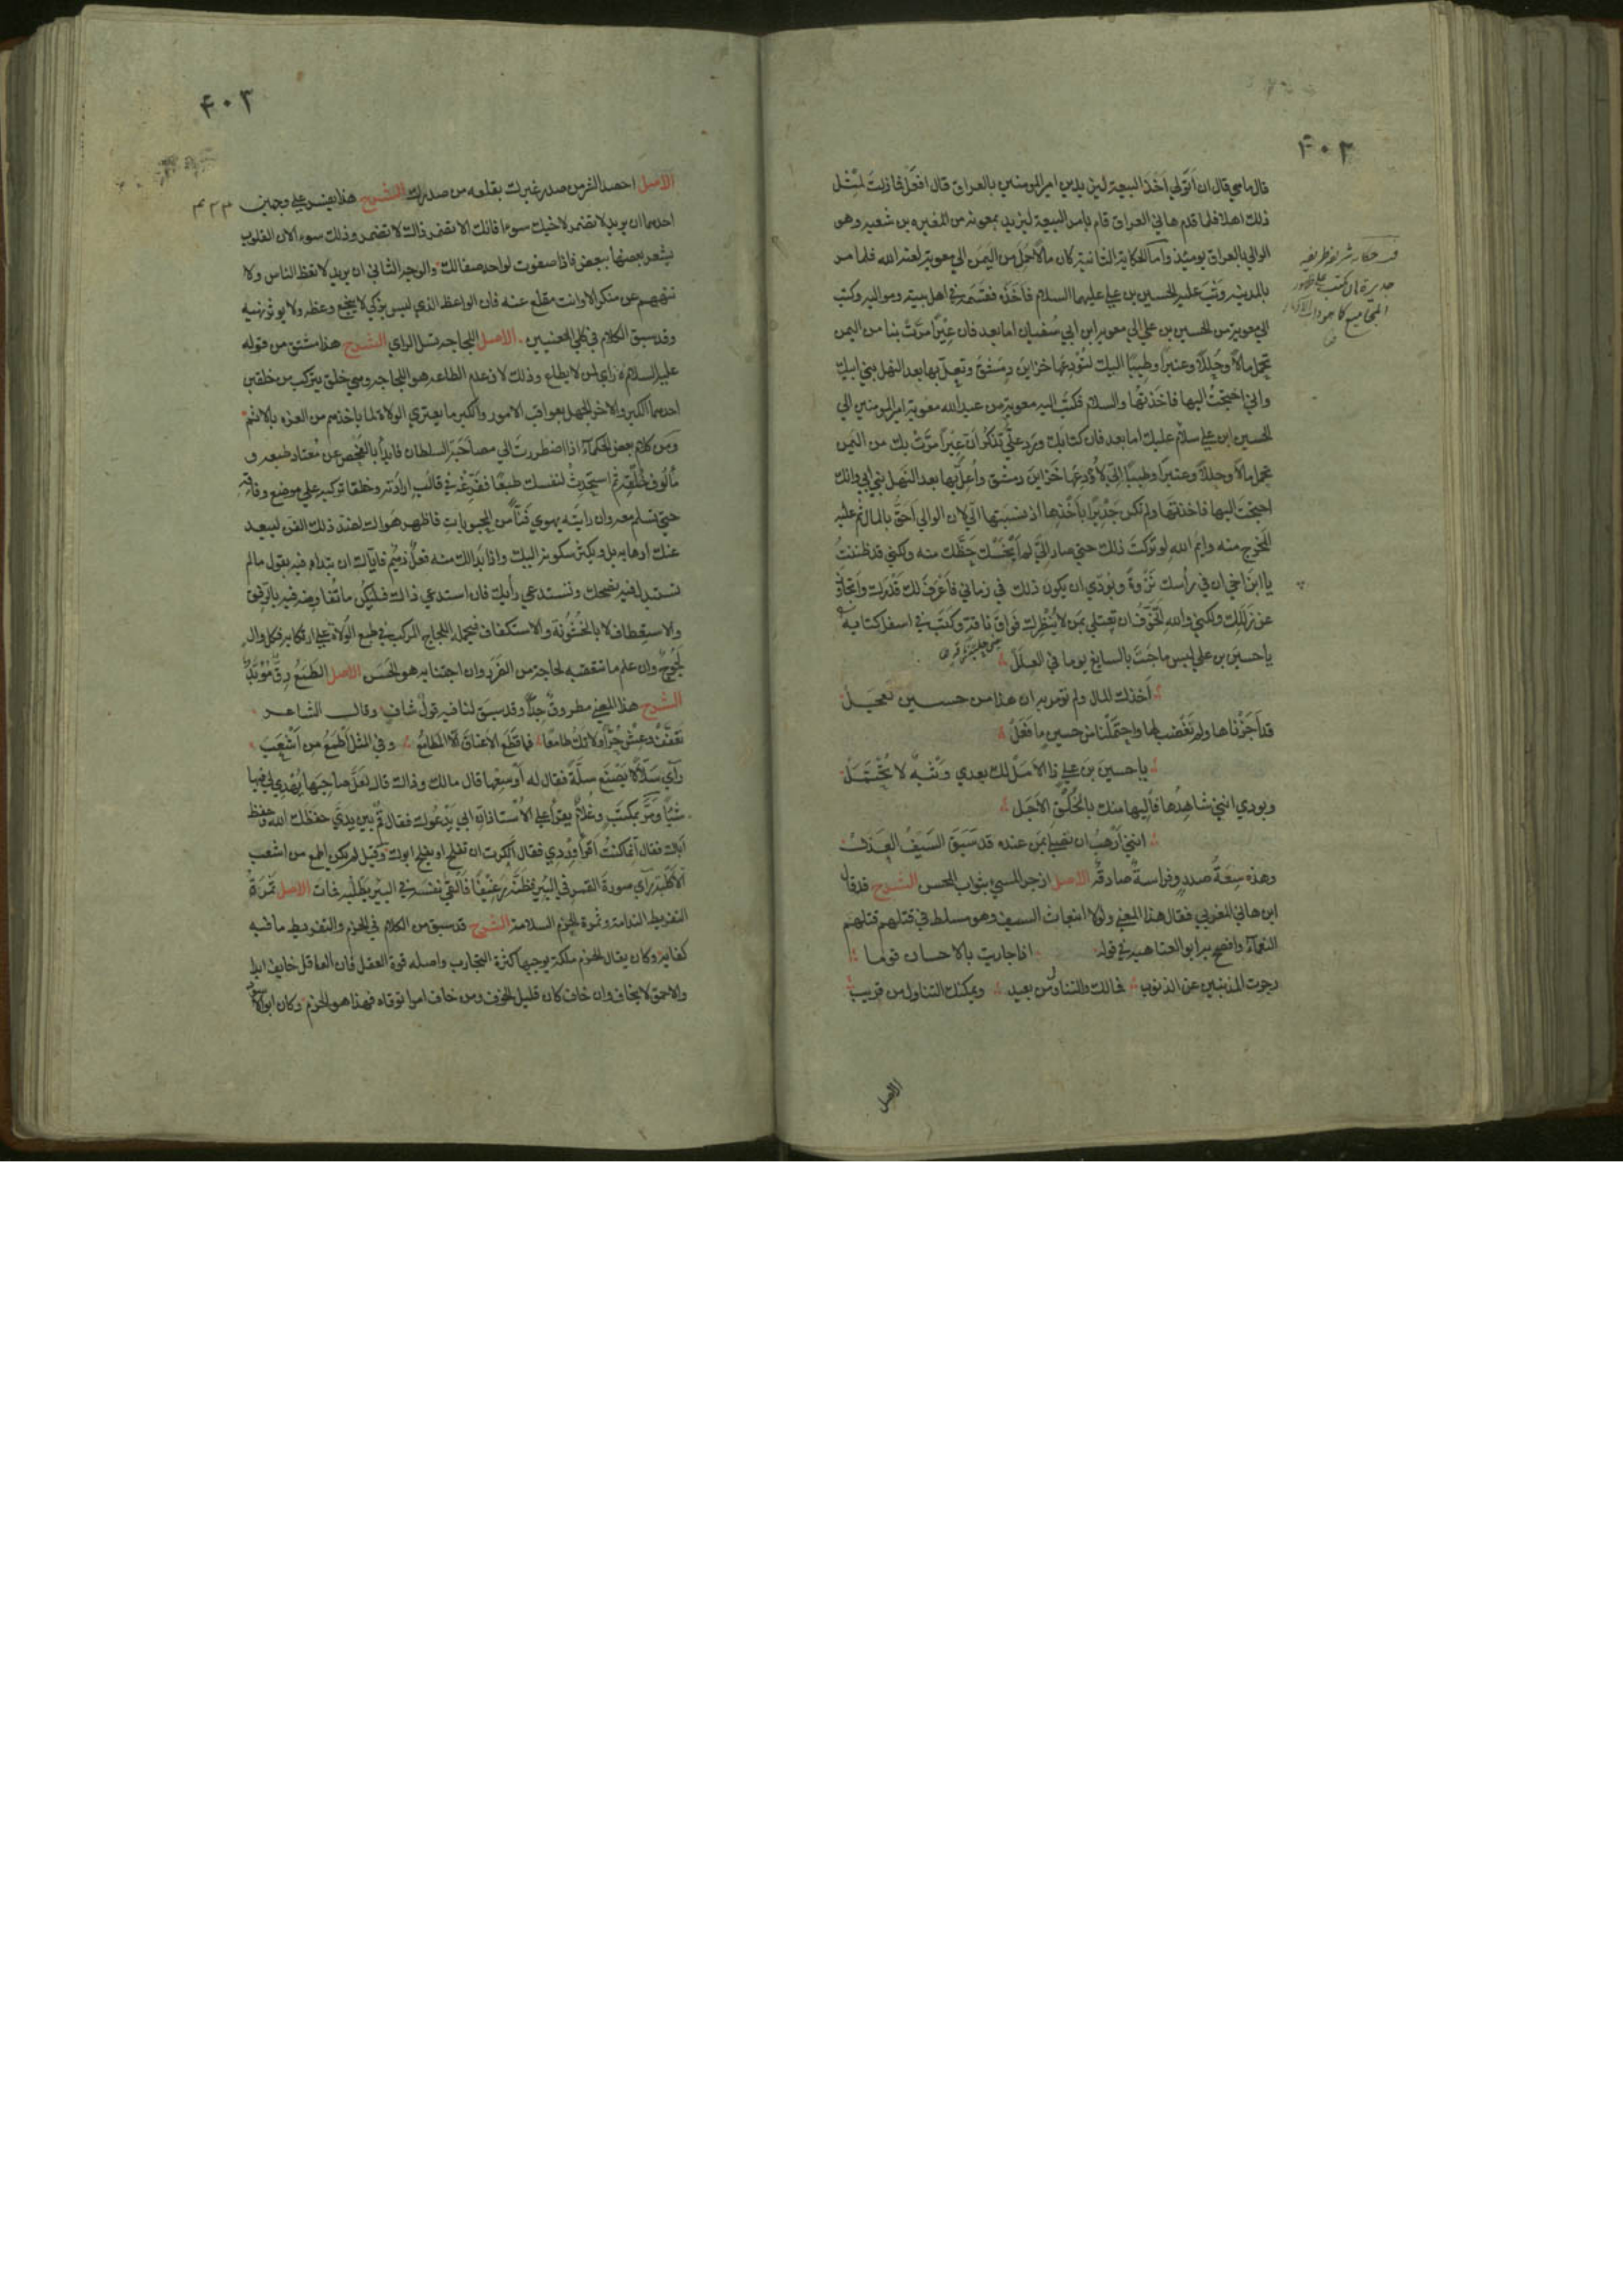 ۴۰۳
قال ما هي قال ان اتولي اخذ البيعة ليزيد بن امير المومنين بالعراق قال افعل فما زلت لمثل
ذلك اهلا فلما قدم هاني العراق قام بامر البيعة ليزيد بمعونة من المغيره بن شعبه وهو
الوالي بالعراق يومئذ واما الحكاية الثانية كان مالا حمل من اليمن الي معوية لعنه الله فلما مر
بالمدينه وثب عليه الحسين بن علي عليهما السلام فاخذه فقسمه في اهل بيته ومواليه وكتب
الي معوية من الحسين بن علي الي معوية ابن ابي سفيان اما بعد فان عيرا مرت بنا من اليمن
تحمل مالا وحللا وعنبرا وطيبا اليك لتودعها خزاين دمشق وتعل بها بعد النهل بني ابيك
واني احتجت اليها فاخذتها والسلام فكتب اليه معوية من عبد الله معوية امير المومنين الي
الحسين ابن علي سلام عليك اما بعد فان كتابك ورد علي تذكر ان عيرا مرت بك من اليمن
تحمل مالا وحللا وعنبرا وطيبا الي لاودعها خزاين دمشق واعل بها بعد النهل بني ابي وانك
احتجت اليها فاخذتها ولم تكن جديرا باخذها اذ نسبتها الي لان الوالي احق بالمال ثم عليه
المخرج منه وايم الله لو تركت ذلك حتي صار الي لم ابخسك حظك منه ولكني قد ظننت
يا ابن اخي ان في راسك نزوة وبودي ان يكون ذلك في زماني فاعرف لك قدرك واتجاوز
عن زللك ولكني والله اتخوف ان تبتلي بمن لا ينظرك فواق ناقة وكتب في اسفل كتابه
يا حسين بن علي ليس ما جئت بالسايغ يوما في العلل
اخذك المال ولم تومر به ان هذا من حسين لعجل
قد اجزناها ولم نغضب لها واحتملنا من حسين ما فعل
يا حسين بن علي ذا الامل لك بعدي وثبة لا تحتمل
وبودي انني شاهدها فاليها منك بالخلق الاجل
انني ارهب ان تصلي بمن عنده قد سبق السيف العذل
وهذه سعة صدر وفراسة صادقة الاصل ازجر المسيئ بثواب المحسن الشرح قد قال
ابن هاني المغربي فقال هذا المعني ولولا انبعاث السيف وهو مسلط في قتلهم قتلهم
النعماء وافصح به ابو العتاهية في قوله اذا جازيت بالاحسان قوما
زجرت المذنبين عن الذنوب فما لك والتناول من بعيد ويمكنك التناول من قريب
الاصل
۴۰۴
۴۲۳
الاصل احصد الشر من صدر غيرك بقلعه من صدرك الشرح هذا يفسر علي وجهين
احدهما ان يريد لا تضمر لاخيك سوءا فانك لا تضمر ذاك الا تضمر وذلك سوء لان القلوب
يشعر بعضها ببعض فاذا صفوت لواحد صفا لك والوجه الثاني ان يريد لا تعظ الناس ولا
تنههم عن منكر الا وانت مقلع عنه فان الواعظ الذي ليس بزكي لا ينجع وعظه ولا يوثر نهيه
وقد سبق الكلام في كلي المعنيين الاصل اللجاجة تسل الراي الشرح هذا مشتق من قوله
عليه السلام لا راي لمن لا يطاع وذلك لان عدم الطاعه هو اللجاجة وهي خلق يتركب من خلقين
احدهما الكبر والاخر الجهل بعواقب الامور واكثر ما يعتري الولاة لما ياخذهم من العزه بالاثم
ومن كلام بعض الحكماء اذا اضطررت الي مصاحبة السلطان فابدا بالفحص عن معتاد طبعه و
مالوف خلقه ثم استحدث لنفسك طبعا ففرغه في قالب ارادته وخلقا تركبه علي موضع وفاقه
حتي تسلم معه وان رايته يهوي فنا من المحبوبات فاظهر هواك لضد ذلك الفن ليبعد
عنك ارهابه بل ويكثر سكونه اليك واذا بدا لك منه فعل ذميم فاياك ان تبداه فيه بقول ما لم
تستبد فيه نصحك وتستدعي رايك فان استدعي ذاك فليكن ما تفاوضه فيه بالرفق
والاستعطاف لا بالخشونة والاستنكاف فيحمله اللجاج المركب في طبع الولاة علي ارتكابه فكل وال
لجوج وان علم ما تتعقبه لجاجة من الضرر وان اجتنابه هو الحسن الاصل الطمع رق موبد
الشرح هذا المعني مطروق جدا وقد سبق لنا فيه قول شاف وقال الشاعر
تعفف وعش حرا ولا تك طامعا فما قطع الاعناق الا المطامع وفي المثل اطمع من اشعب
راي سلالا يصنع سلة فقال له اوسعها قال مالك وذاك قال لعل صاحبها يهدي لي فيها
شيئا ومر بمكتب وغلام يقرا علي الاستاذ ان ابي يدعوك فقال قم بين يدي حفظك الله وحفظ
اباك فقال انما كنت اقرا وردي فقال انكرت ان تفلح او يفلح ابوك وقيل لم يكن اطمع من اشعب
الا كلبه راي صورة القمر في البير فظنه رغيفا فالقي نفسه في البير يطلبه فمات الاصل ثمرة
التفريط الندامة وثمرة الحزم السلامة الشرح قد سبق من الكلام في الحزم والتفريط ما فيه
كفاية وكان يقال الحزم ملكة يوجبها كثرة التجارب واصله قوة العقل فان العاقل خايف ابدا
والاحمق لا يخاف وان خاف كان قليل الخوف ومن خاف امرا توقاه فهذا هو الحزم وكان ابو الاسود